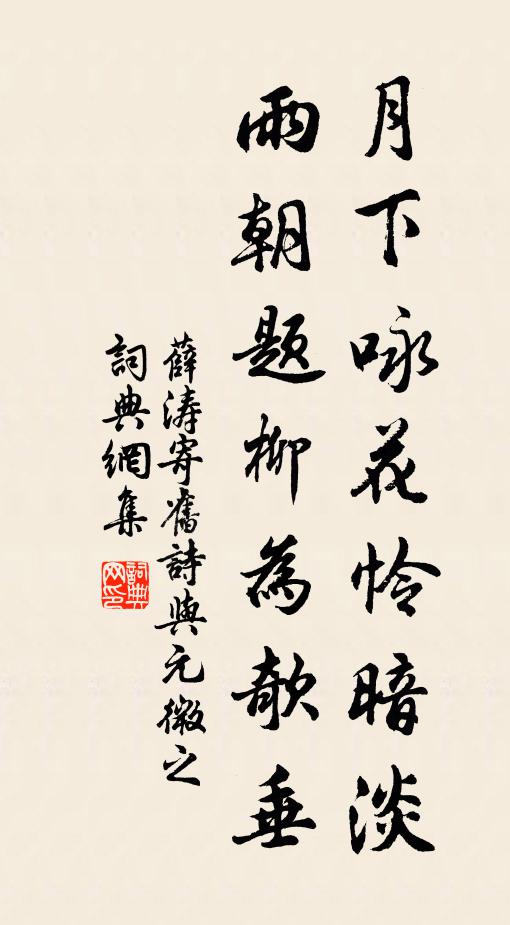 月下咏花怜暗淡
雨朝題柳為欹垂
薛涛寄舊詩與元微之
詞典網集
詞典网印